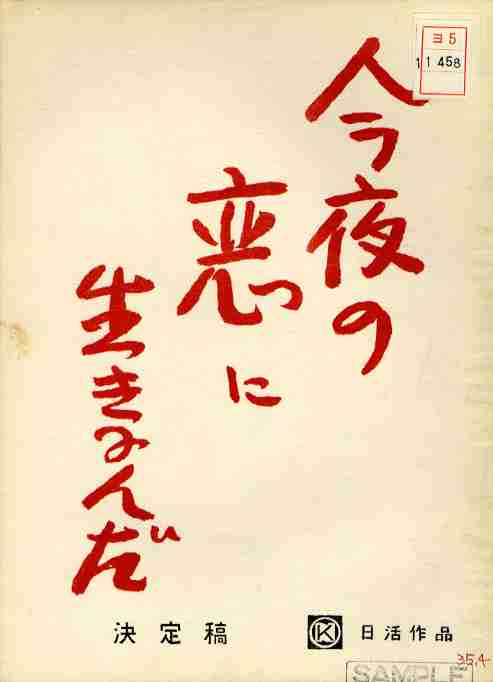 ヨ5
11 458
今夜の
恋に
生きるんだ
決定稿
K 日活作品
35.4
SAMPLE